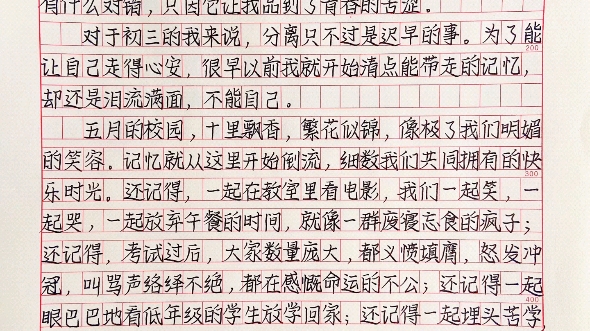 有什么对错，只因它让我品到了青春的苦涩。
对于初三的我来说，分离只不过是迟早的事。为了能
200
让自己走得心安，很早以前我就开始清点能带走的记忆，
却还是泪流满面，不能自已。
五月的校园，十里飘香，繁花似锦，像极了我们明媚
的笑容。记忆就从这里开始倒流，细数我们共同拥有的快
300
乐时光。还记得，一起在教室里看电影，我们一起笑，一
起哭，一起放弃午餐的时间，就像一群废寝忘食的疯子；
还记得，考试过后，大家数量庞大，都义愤填膺，怒发冲
冠，叫骂声络绎不绝，都在感慨命运的不公；还记得一起
400
眼巴巴地看低年级的学生放学回家；还记得一起埋头苦学